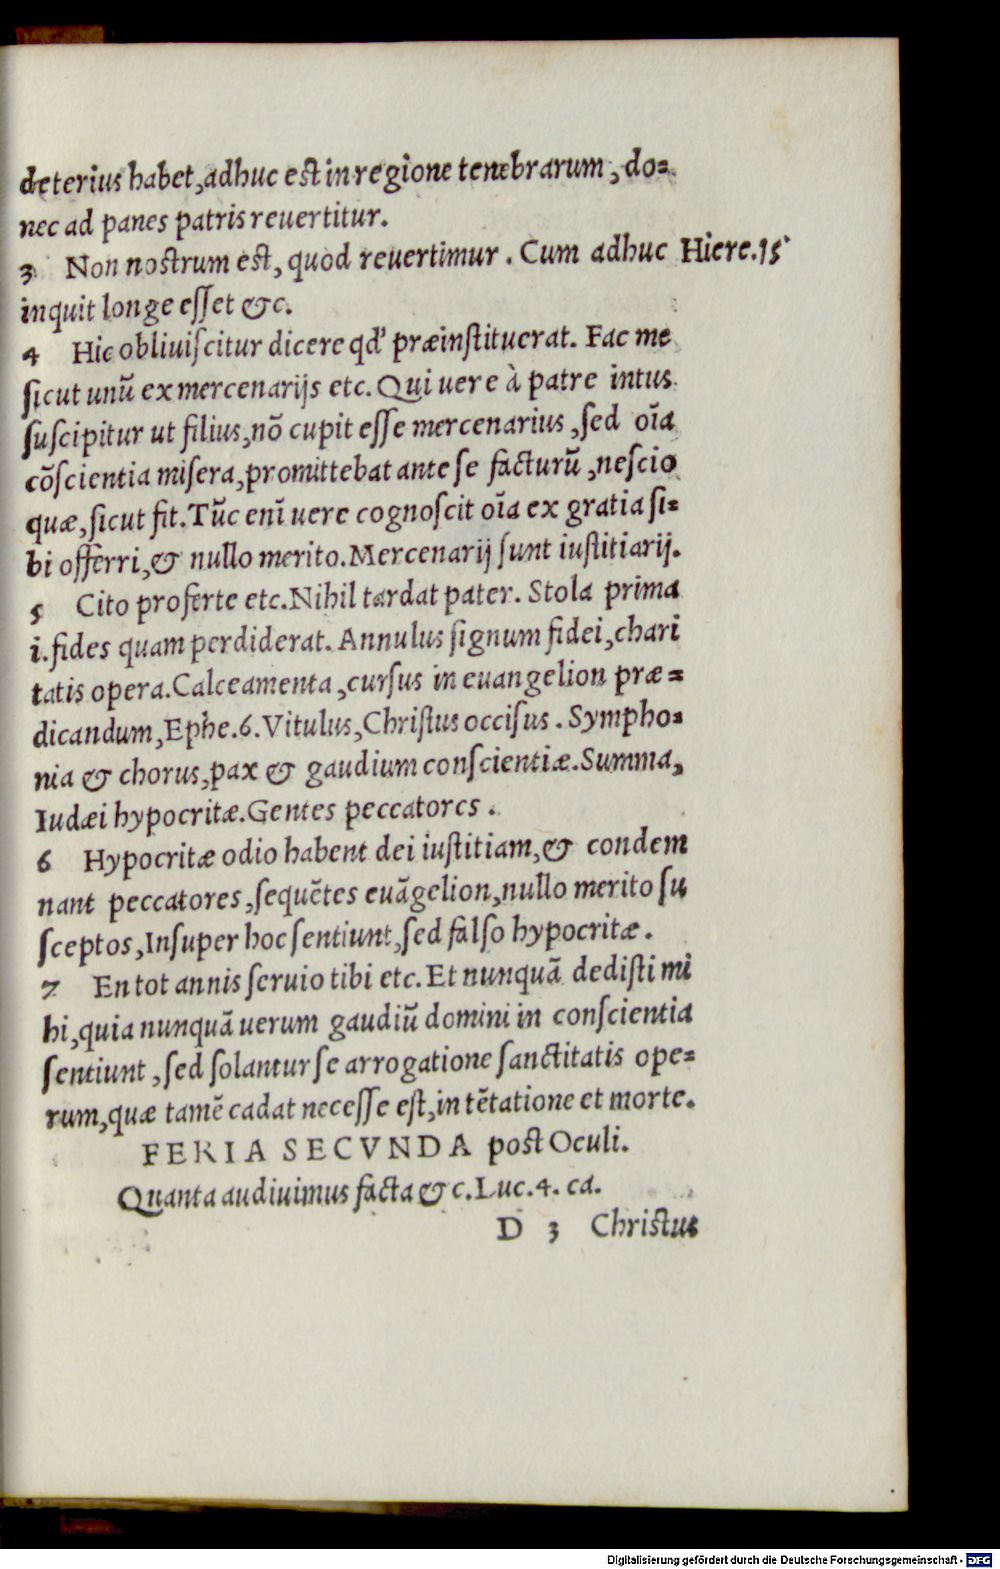 deterius habet, adhuc est in regione tenebrarum, do=
nec ad panes patris reuertitur.
3 Non nostrum est, quod reuertimur. Cum adhuc Hiere.15
inquit longe eſſet &c.
4 Hic obliuiſcitur dicere qd' præinſtituerat. Fac me
ſicut unū ex mercenarijs etc. Qui uere à patre intus
ſuſcipitur ut filius, nō cupit eſſe mercenarius, ſed oīa
cōſcientia miſera, promittebat ante ſe facturū, neſcio
quæ, ſicut fit. Tūc enī uere cognoſcit oīa ex gratia ſi=
bi offerri, & nullo merito. Mercenarij ſunt iuſtitiarij.
5 Cito proferte etc. Nihil tardat pater. Stola prima
i. fides quam perdiderat. Annulus ſignum fidei, chari
tatis opera. Calceamenta, curſus in euangelion præ=
dicandum, Ephe.6. Vitulus, Chriſtus occiſus. Sympho=
nia & chorus, pax & gaudium conſcientiæ. Summa,
Iudæi hypocritæ. Gentes peccatores.
6 Hypocritæ odio habent dei iuſtitiam, & condem
nant peccatores, ſequētes euāgelion, nullo merito ſu
ſceptos, Inſuper hoc ſentiunt, ſed falſo hypocritæ.
7 En tot annis ſeruio tibi etc. Et nunquā dediſti mi
hi, quia nunquā uerum gaudiū domini in conſcientia
ſentiunt, ſed ſolantur ſe arrogatione ſanctitatis ope=
rum, quæ tamē cadat neceſſe eſt, in tētatione et morte.
FERIA SECVNDA post Oculi.
Quanta audiuimus facta &c. Luc.4. ca.
D 3 Christus
Digitalisierung gefördert durch die Deutsche Forschungsgemeinschaft - DFG